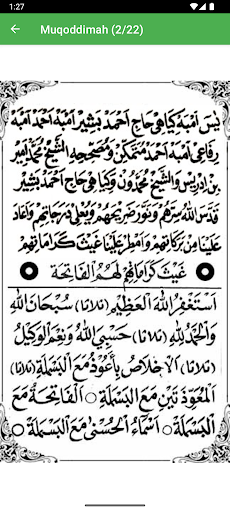 1:27
Muqoddimah (2/22)
يس امبه كياهي حاج احمد بشير امبه احمد امبه
رفاعي امبه احمد متمكن ومصححه الشيخ محمد امير
بن ادريس والشيخ محمدون وكياهي حاج احمد بشير
قَدَّسَ اللهُ سِرَّهُمْ وَنَوَّرَ ضَرِيْحَهُمْ وَيُعْلِي دَرَجَاتِهِمْ وَأَعَادَ
عَلَيْنَا مِنْ بَرَكَاتِهِمْ وَأَمْطَرَ عَلَيْنَا غَيْثَ كَرَامَاتِهِمْ
غَيْثَ كَرَامَاتِهِمْ لَهُمُ الْفَاتِحَةُ
اَسْتَغْفِرُ اللهَ الْعَظِيْمَ (ثلاثا) سُبْحَانَ اللهِ
وَالْحَمْدُ لِلّٰهِ (ثلاثا) حَسْبِيَ اللهُ وَنِعْمَ الْوَكِيْلُ
(ثلاثا) اَلْاِخْلَاصُ بِأَعُوْذُ مَعَ الْبَسْمَلَةِ (ثلاثا)
اَلْمُعَوِّذَتَيْنِ مَعَ الْبَسْمَلَةِ ○ اَلْفَاتِحَةُ مَعَ
الْبَسْمَلَةِ ○ اَسْمَاءُ الْحُسْنٰى مَعَ الْبَسْمَلَةِ ○